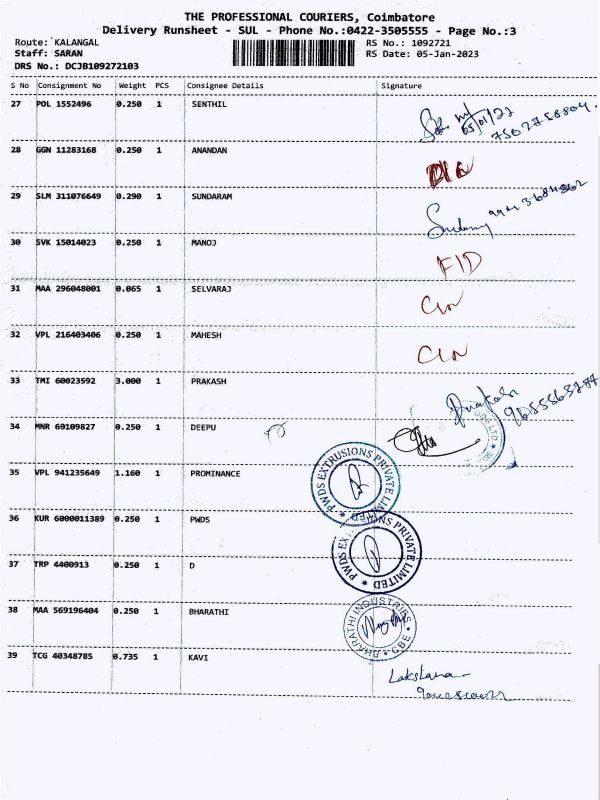 THE PROFESSIONAL COURIERS, Coimbatore
Delivery Runsheet - SUL - Phone No.:0422-3505555 - Page No.:3
Route: KALANGAL
RS No.: 1092721
Staff: SARAN
RS Date: 05-Jan-2023
DRS No.: DCJB109272103
S No Consignment No Weight PCS Consignee Details Signature
27 POL 1552496 0.250 1 SENTHIL
05/01/23
7502758804.
28 GGN 11283168 0.250 1 ANANDAN
29 SLM 311076649 0.290 1 SUNDARAM
30 SVK 15014023 0.250 1 MANOJ
FID
31 MAA 296048001 0.065 1 SELVARAJ
32 VPL 216403406 0.250 1 MAHESH
33 TMI 60023592 3.000 1 PRAKASH
Prakash
34 MNR 69109827 0.250 1 DEEPU
35 VPL 941235649 1.160 1 PROMINANCE
PWDS EXTRUSIONS PRIVATE LIMITED
36 KUR 6000011389 0.250 1 PWDS
PWDS EX IONS PRIVATE LIMITED
37 TRP 4400913 0.250 1 D
38 MAA 569196404 0.250 1 BHARATHI
BHARATHI INDUSTRIES * CBE *
39 TCG 40348785 0.735 1 KAVI
Lakshana